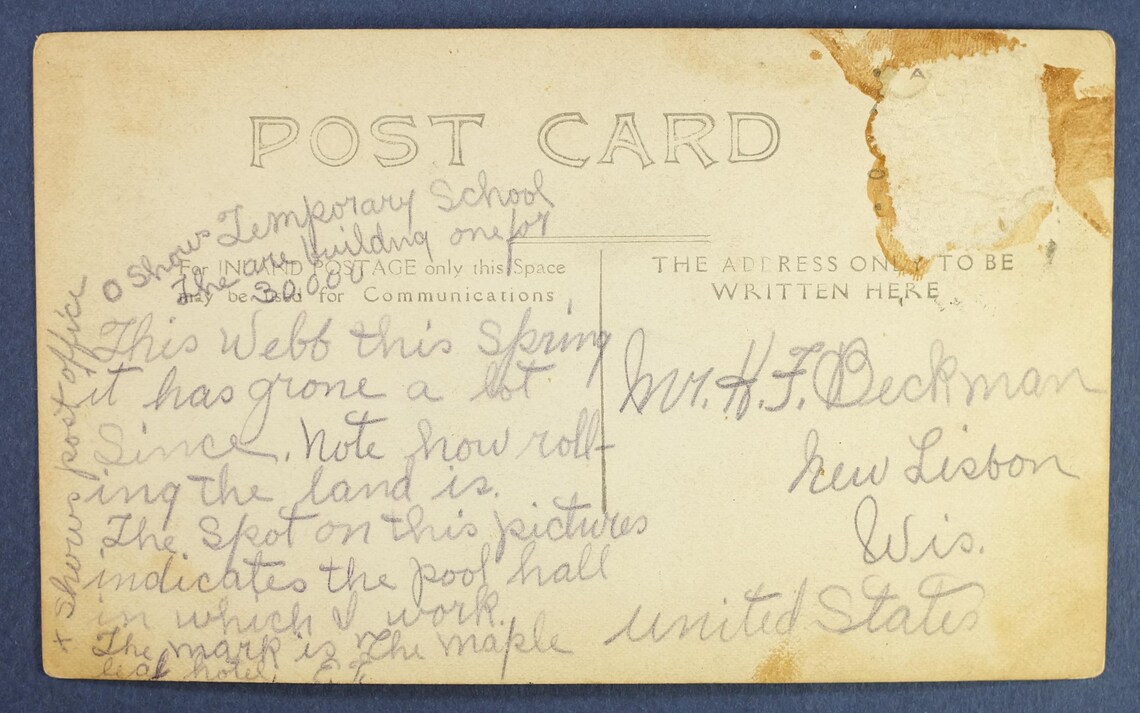 POST CARD
O Shows Temporary School
The are building one for
30,000
For INLAND POSTAGE only this Space
may be used for Communications
THE ADDRESS ONLY TO BE
WRITTEN HERE
X Shows post office
This Webb this Spring
it has grone a lot
Since. Note how roll-
ing the land is.
The Spot on this pictures
indicates the pool hall
in which I work.
The mark is The Maple
leaf hotel.
Mr. H. F. Beckman
New Lisbon
Wis.
United States